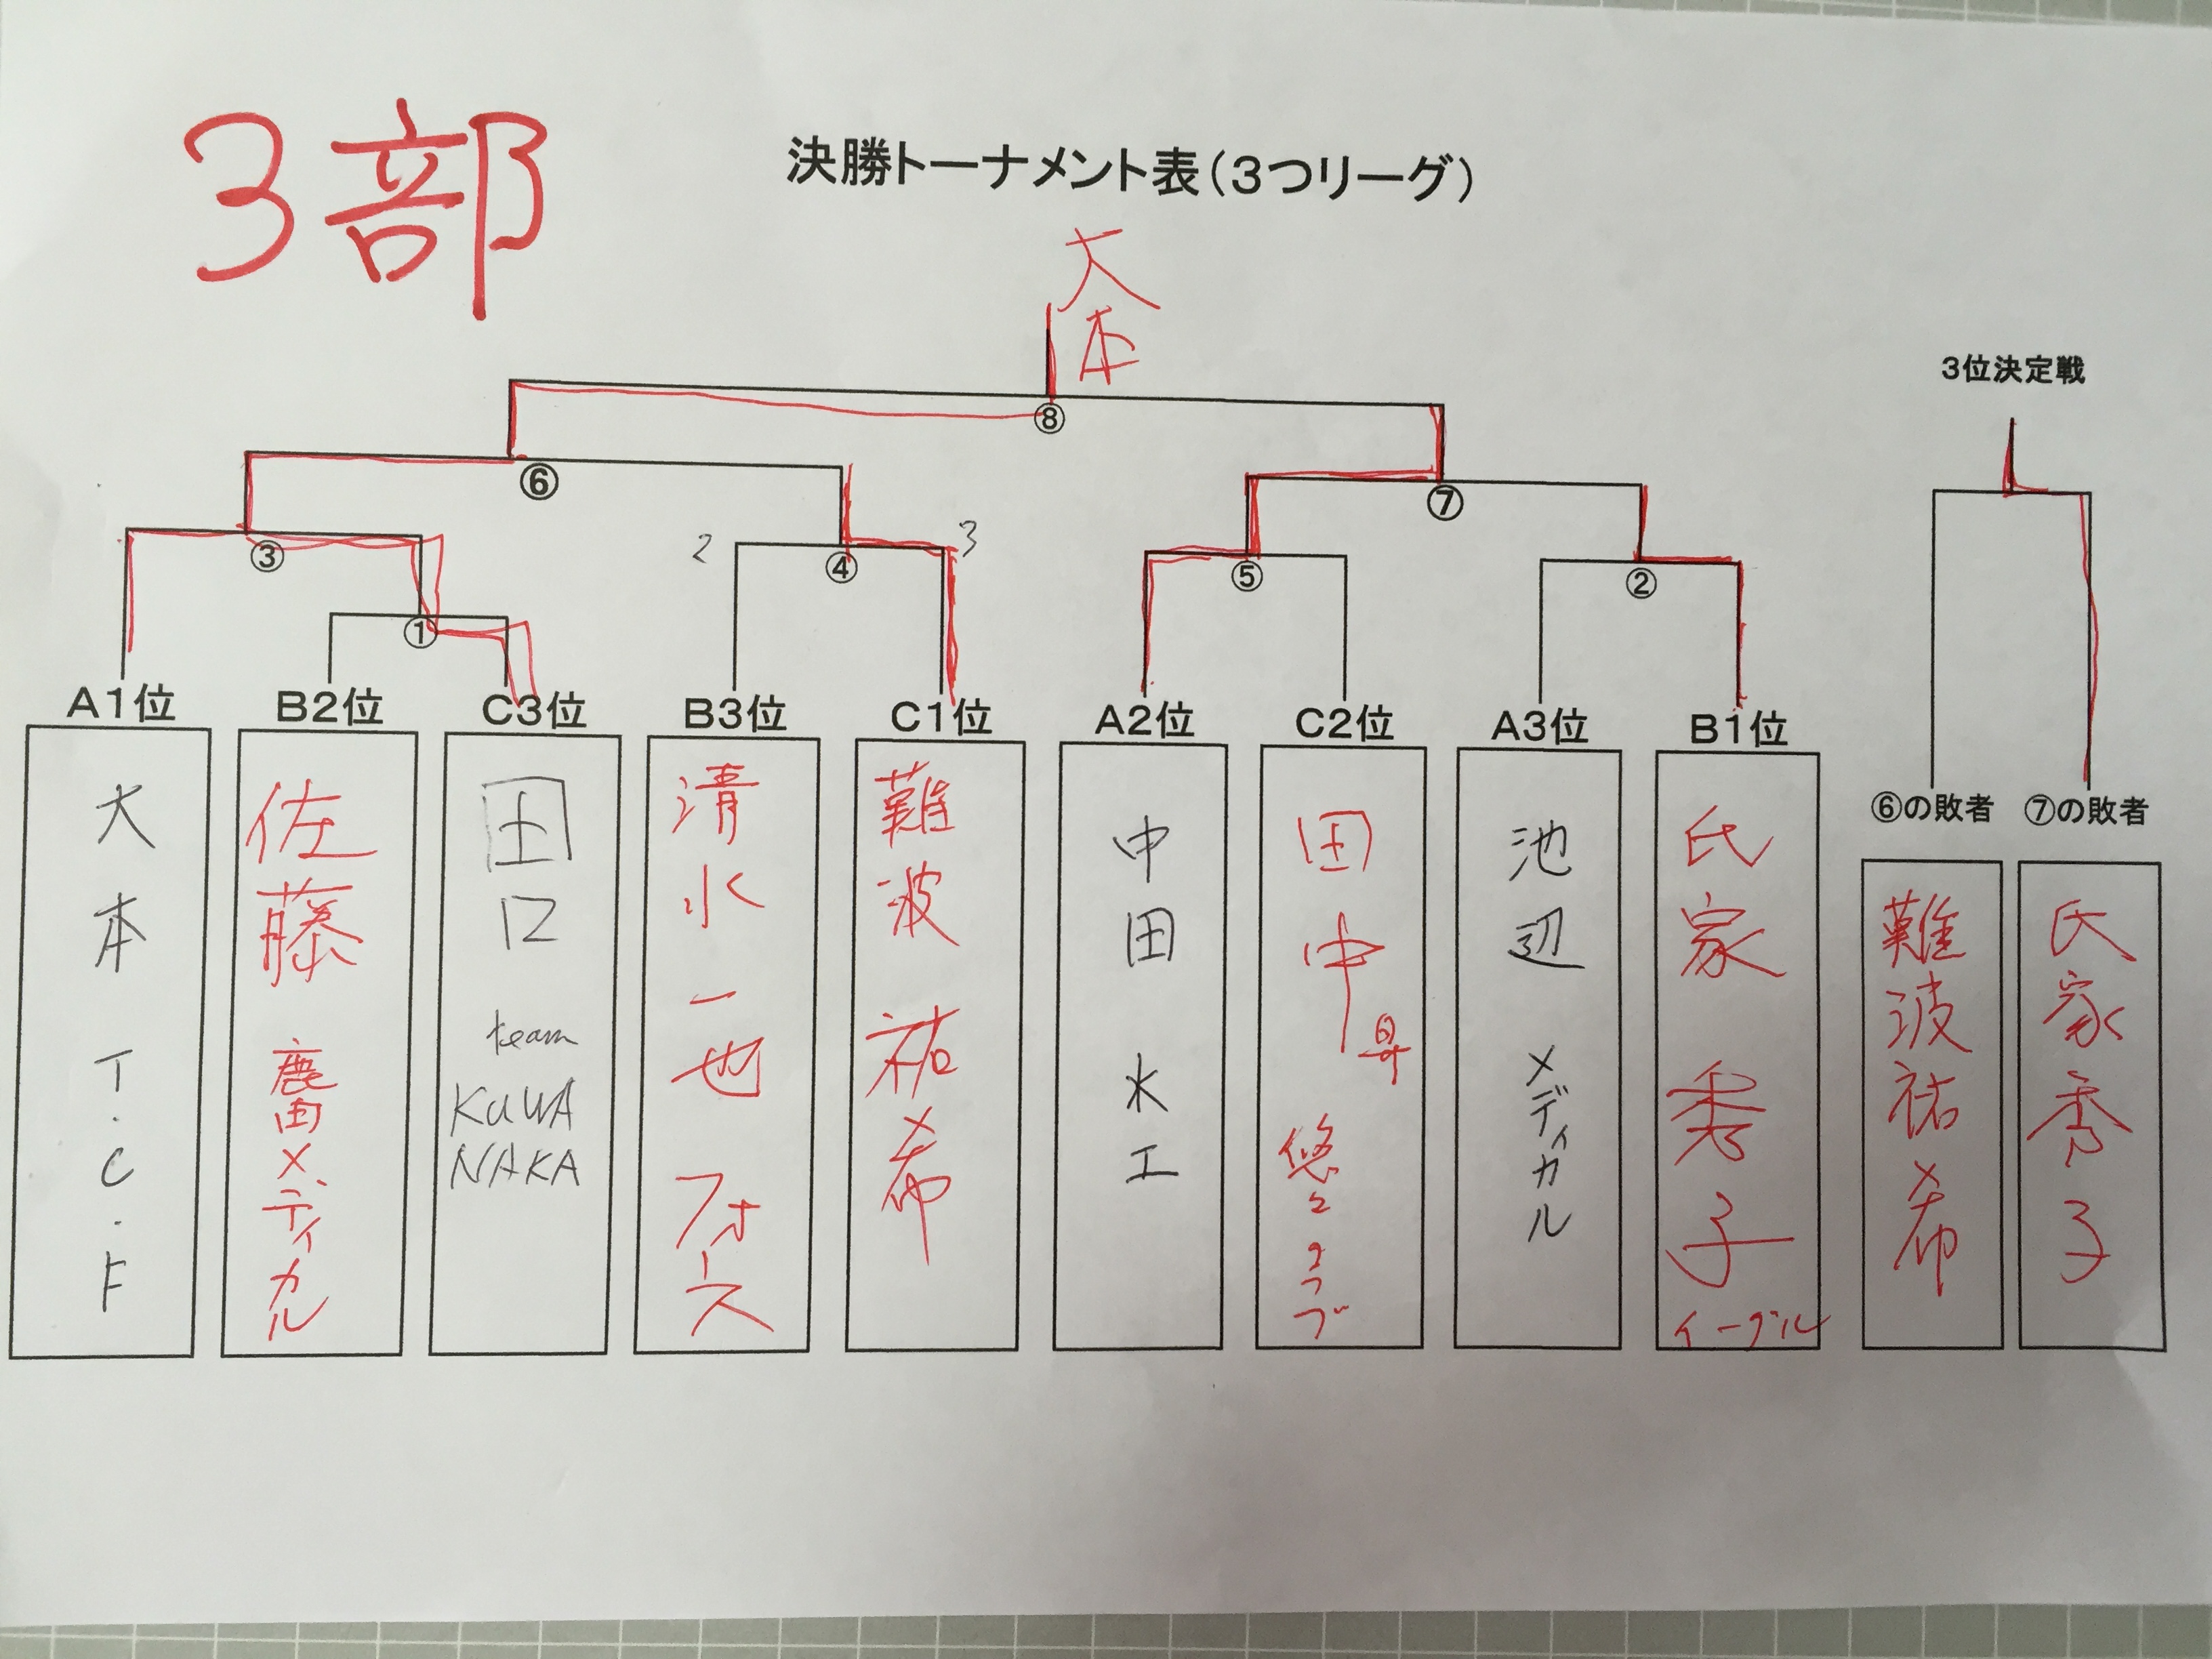 3部
決勝トーナメント表(3つリーグ)
大本
3位決定戦
⑧
⑥
⑦
2
3
③
④
⑤
②
①
A1位
B2位
C3位
B3位
C1位
A2位
C2位
A3位
B1位
⑥の敗者
⑦の敗者
大本 T.C.F
佐藤 鹿田メディカル
田口 team KUWANAKA
清水一也 フォース
難波 祐希
中田 水工
田中 昇 悠々クラブ
池辺 メディカル
氏家 秀子 イーグル
難波祐希
氏家秀子